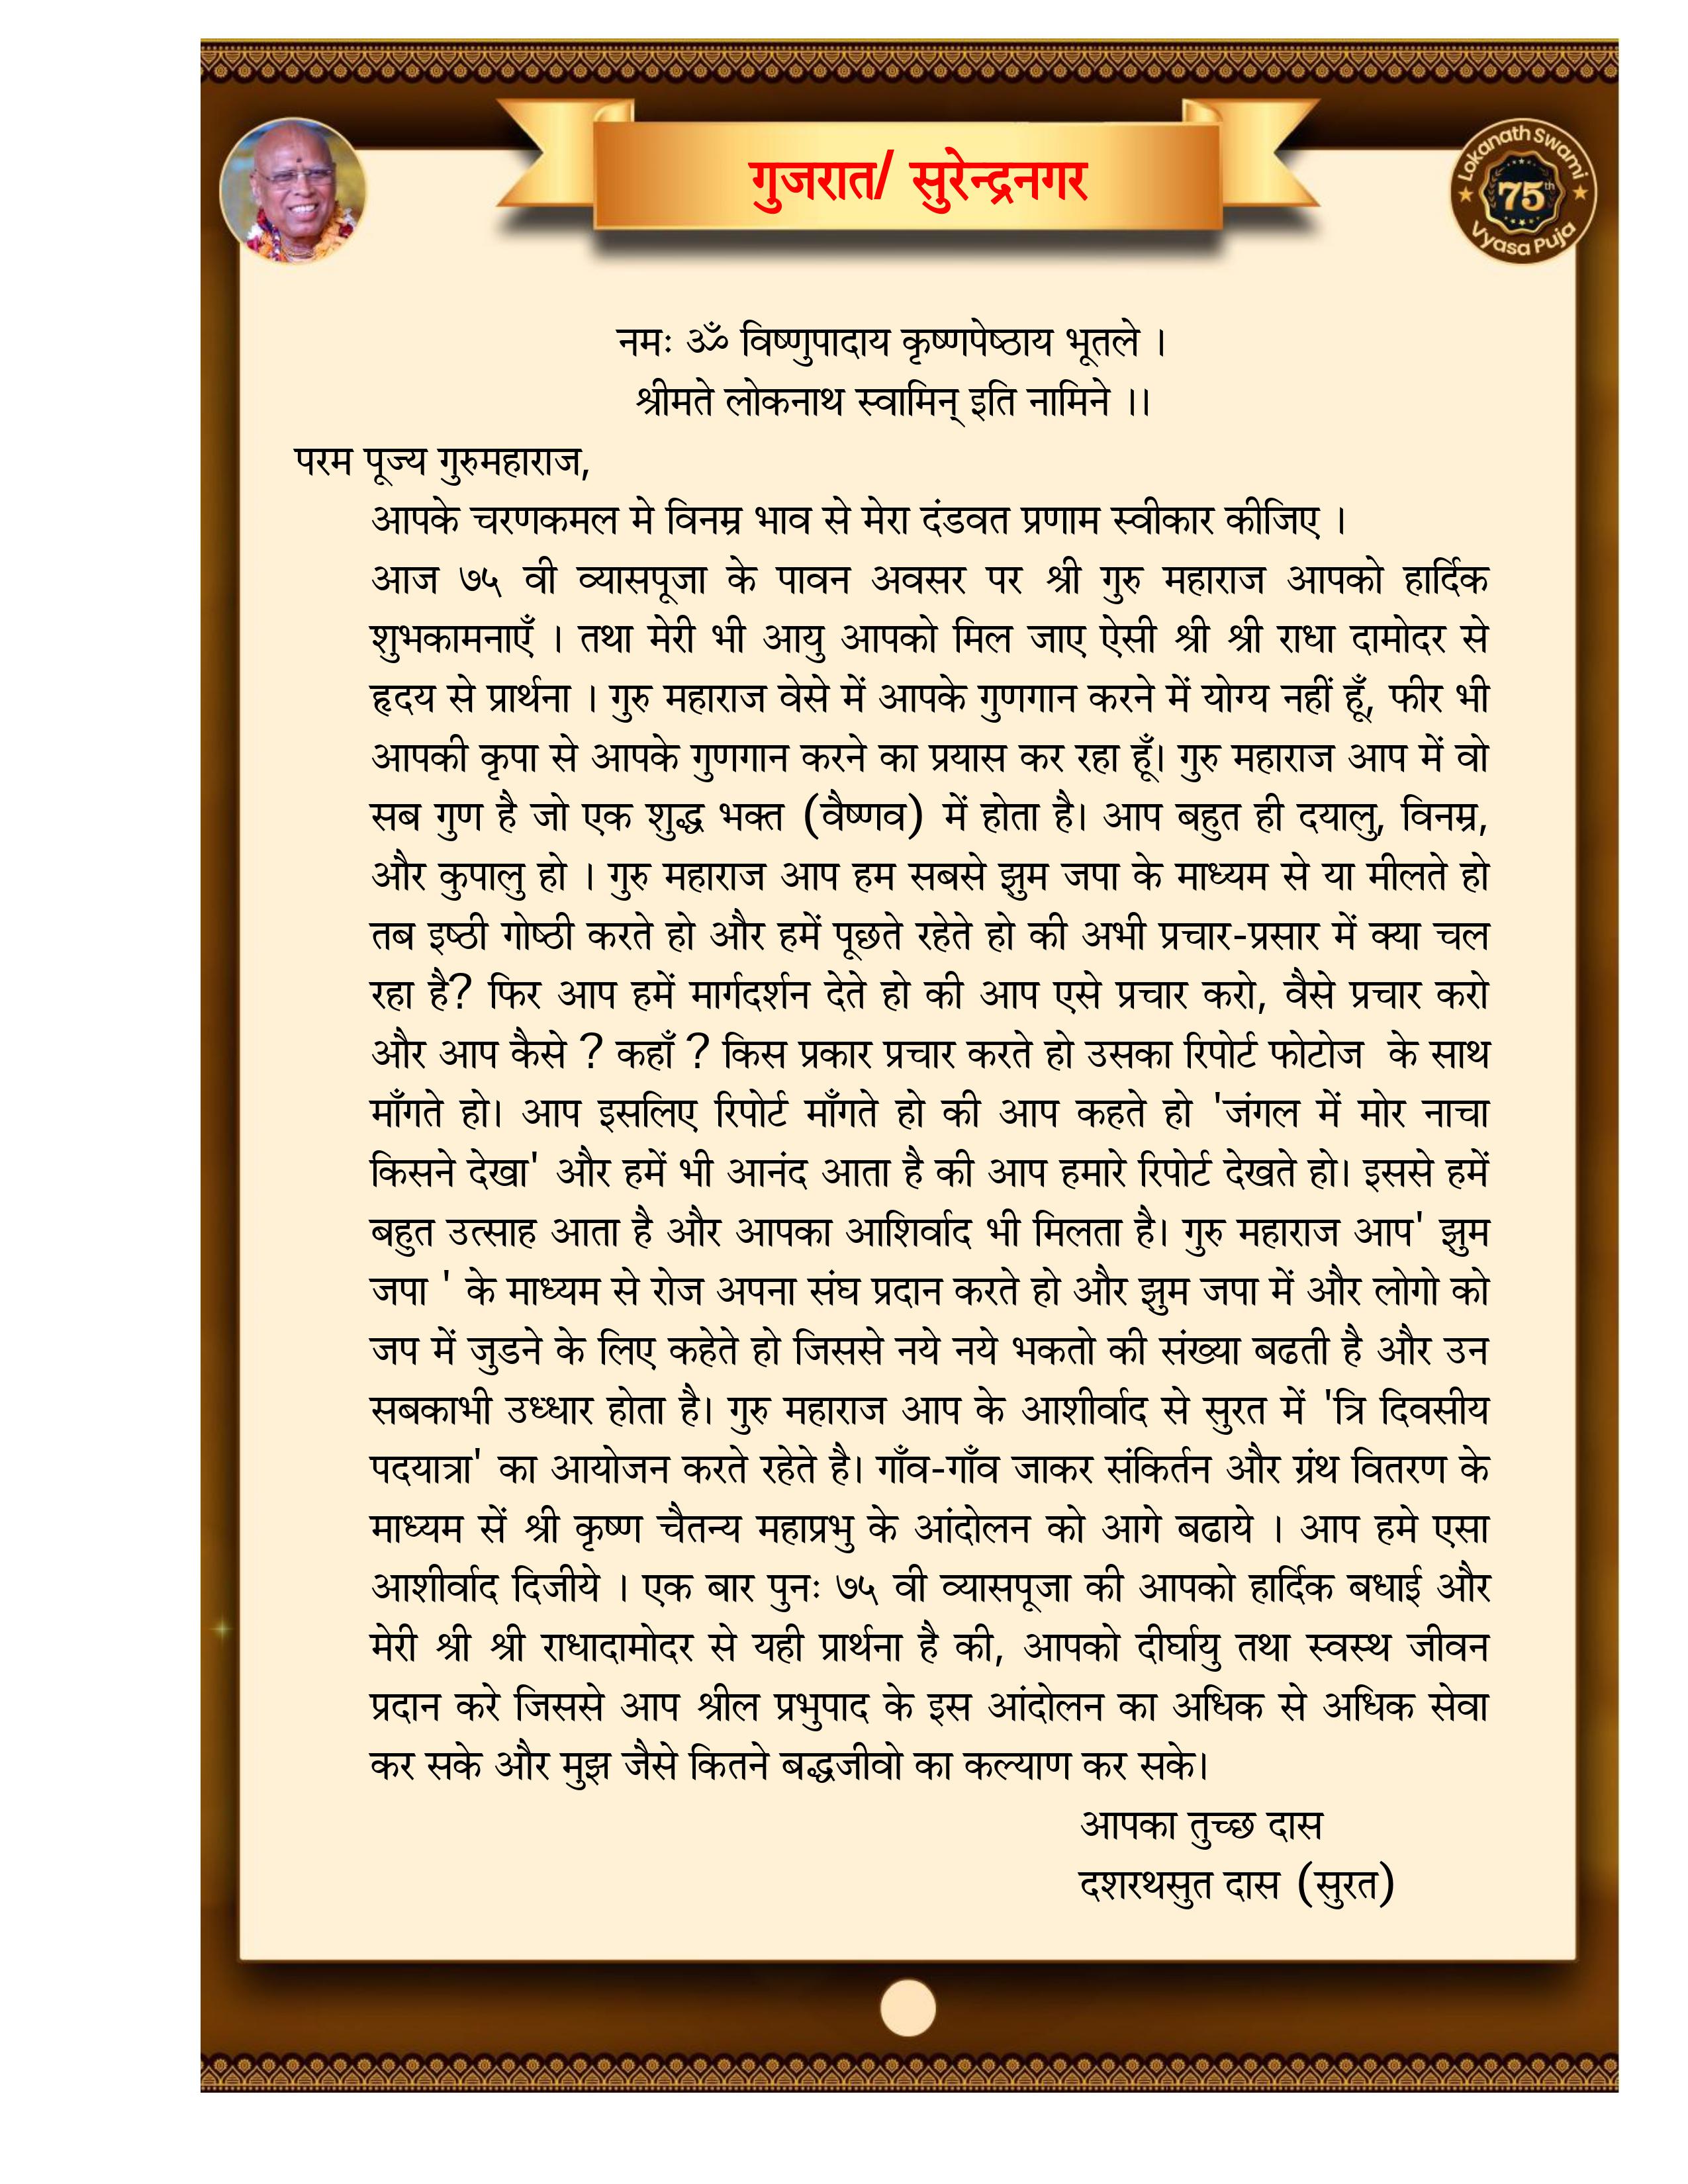 गुजरात/ सुरेन्द्रनगर
Lokanath Swami
75th
Vyasa Puja
नमः ॐ विष्णुपादाय कृष्णपेष्ठाय भूतले ।
श्रीमते लोकनाथ स्वामिन् इति नामिने ।।
परम पूज्य गुरुमहाराज,
आपके चरणकमल मे विनम्र भाव से मेरा दंडवत प्रणाम स्वीकार कीजिए ।
आज ७५ वी व्यासपूजा के पावन अवसर पर श्री गुरु महाराज आपको हार्दिक
शुभकामनाएँ । तथा मेरी भी आयु आपको मिल जाए ऐसी श्री श्री राधा दामोदर से
हृदय से प्रार्थना । गुरु महाराज वेसे में आपके गुणगान करने में योग्य नहीं हूँ, फीर भी
आपकी कृपा से आपके गुणगान करने का प्रयास कर रहा हूँ। गुरु महाराज आप में वो
सब गुण है जो एक शुद्ध भक्त (वैष्णव) में होता है। आप बहुत ही दयालु, विनम्र,
और कुपालु हो । गुरु महाराज आप हम सबसे झुम जपा के माध्यम से या मीलते हो
तब इष्ठी गोष्ठी करते हो और हमें पूछते रहेते हो की अभी प्रचार-प्रसार में क्या चल
रहा है? फिर आप हमें मार्गदर्शन देते हो की आप एसे प्रचार करो, वैसे प्रचार करो
और आप कैसे ? कहाँ ? किस प्रकार प्रचार करते हो उसका रिपोर्ट फोटोज के साथ
माँगते हो। आप इसलिए रिपोर्ट माँगते हो की आप कहते हो 'जंगल में मोर नाचा
किसने देखा' और हमें भी आनंद आता है की आप हमारे रिपोर्ट देखते हो। इससे हमें
बहुत उत्साह आता है और आपका आशिर्वाद भी मिलता है। गुरु महाराज आप' झुम
जपा ' के माध्यम से रोज अपना संघ प्रदान करते हो और झुम जपा में और लोगो को
जप में जुडने के लिए कहेते हो जिससे नये नये भकतो की संख्या बढती है और उन
सबकाभी उध्धार होता है। गुरु महाराज आप के आशीर्वाद से सुरत में 'त्रि दिवसीय
पदयात्रा' का आयोजन करते रहेते है। गाँव-गाँव जाकर संकिर्तन और ग्रंथ वितरण के
माध्यम सें श्री कृष्ण चैतन्य महाप्रभु के आंदोलन को आगे बढाये । आप हमे एसा
आशीर्वाद दिजीये । एक बार पुनः ७५ वी व्यासपूजा की आपको हार्दिक बधाई और
मेरी श्री श्री राधादामोदर से यही प्रार्थना है की, आपको दीर्घायु तथा स्वस्थ जीवन
प्रदान करे जिससे आप श्रील प्रभुपाद के इस आंदोलन का अधिक से अधिक सेवा
कर सके और मुझ जैसे कितने बद्धजीवो का कल्याण कर सके।
आपका तुच्छ दास
दशरथसुत दास (सुरत)